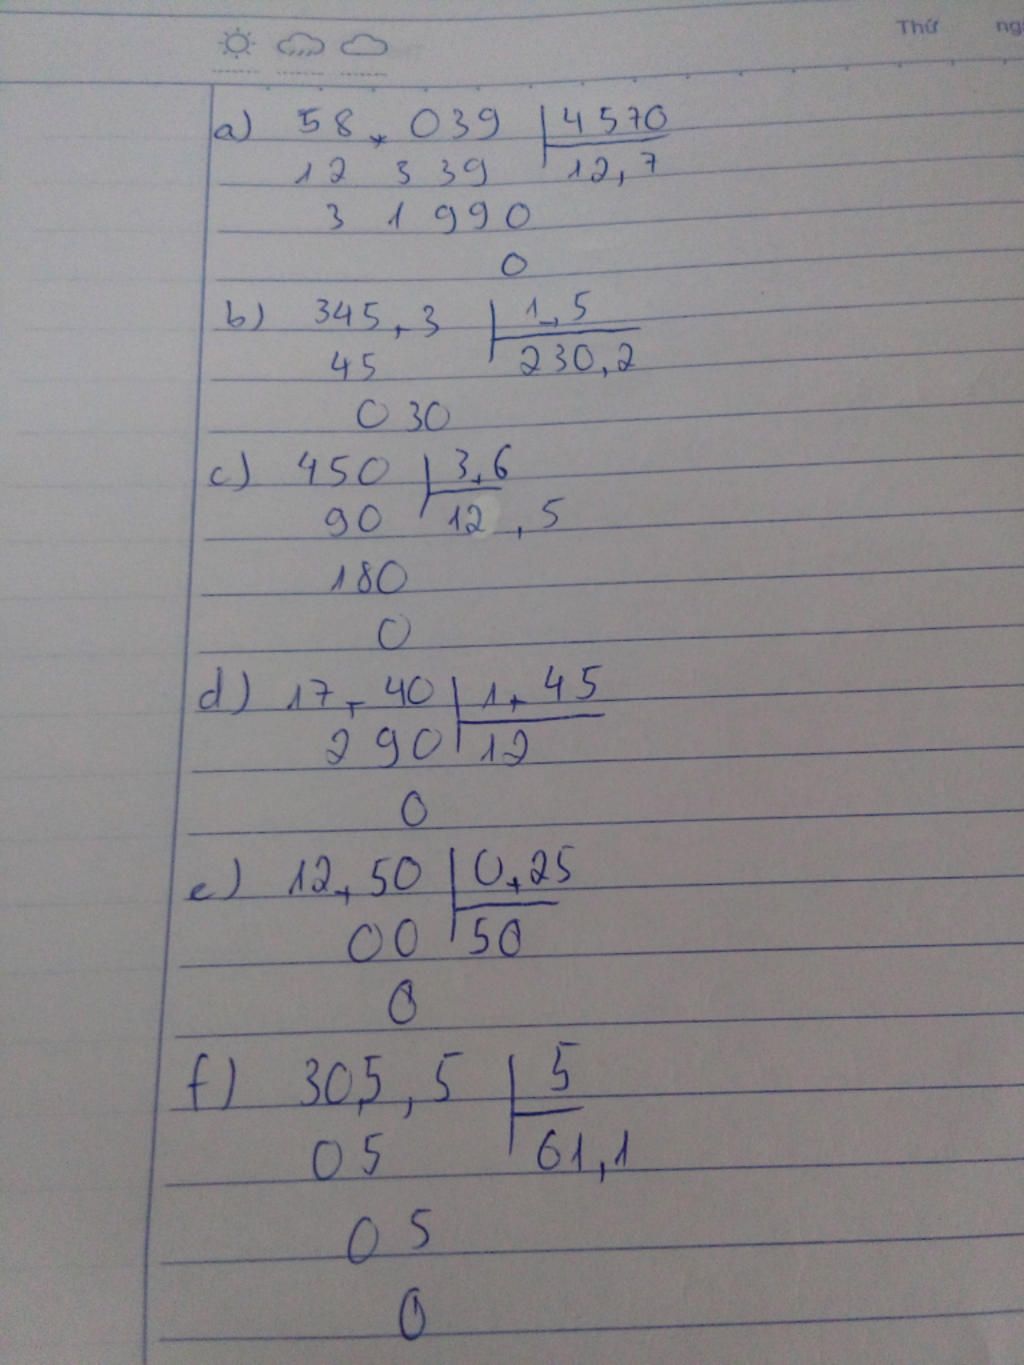 Thứ ng
a) 58,039 | 4570
12 339 12,7
3 1 990
0
b) 345,3 | 1,5
45 230,2
0 30
c) 450 | 3,6
90 12,5
180
0
d) 17,40 | 1,45
2 90 12
0
e) 12,50 | 0,25
00 50
0
f) 305,5 | 5
05 61,1
05
0